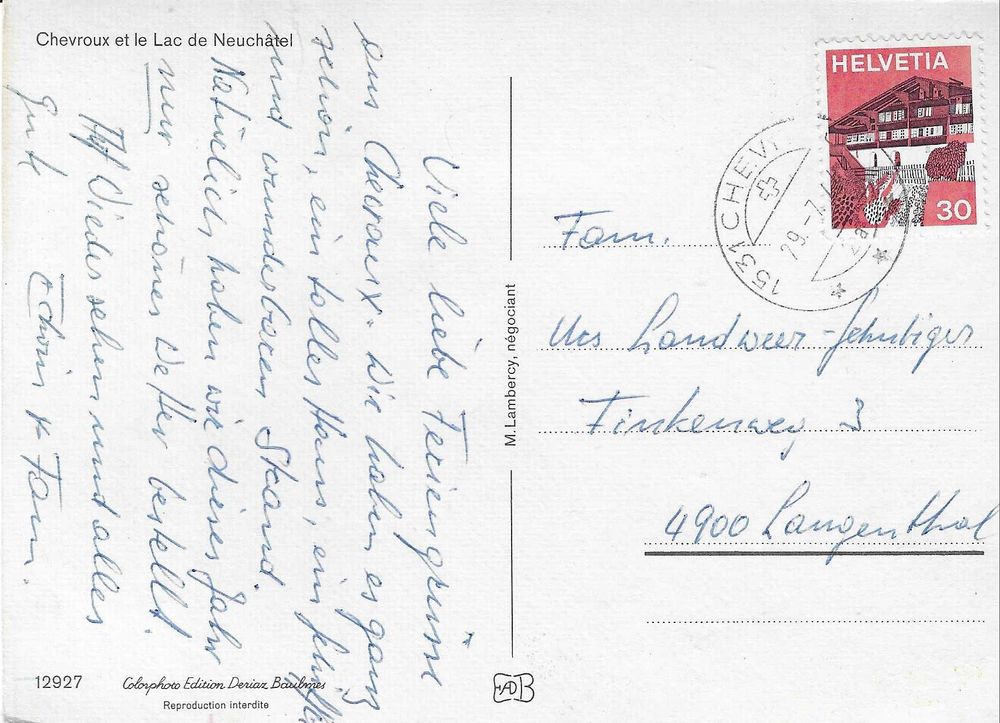 Chevroux et le Lac de Neuchâtel
Viele liebe Feriengrüsse
aus Chevroux. Wir haben es ganz
schön, ein tolles Haus, ein
und wunderbaren Strand.
Natürlich haben wir dieses Jahr
nur schönes Wetter bestellt.
Auf Wiedersehen und alles
Gute
+ Fam.
12927
Colorphoto Edition Deriaz Baulmes
Reproduction interdite
M. Lambercy, négociant
HELVETIA
30
1531 CHEV
29.-7.
Fam.
Urs Landweer-Jehnbiger
Finkenweg 3
4900 Langenthal